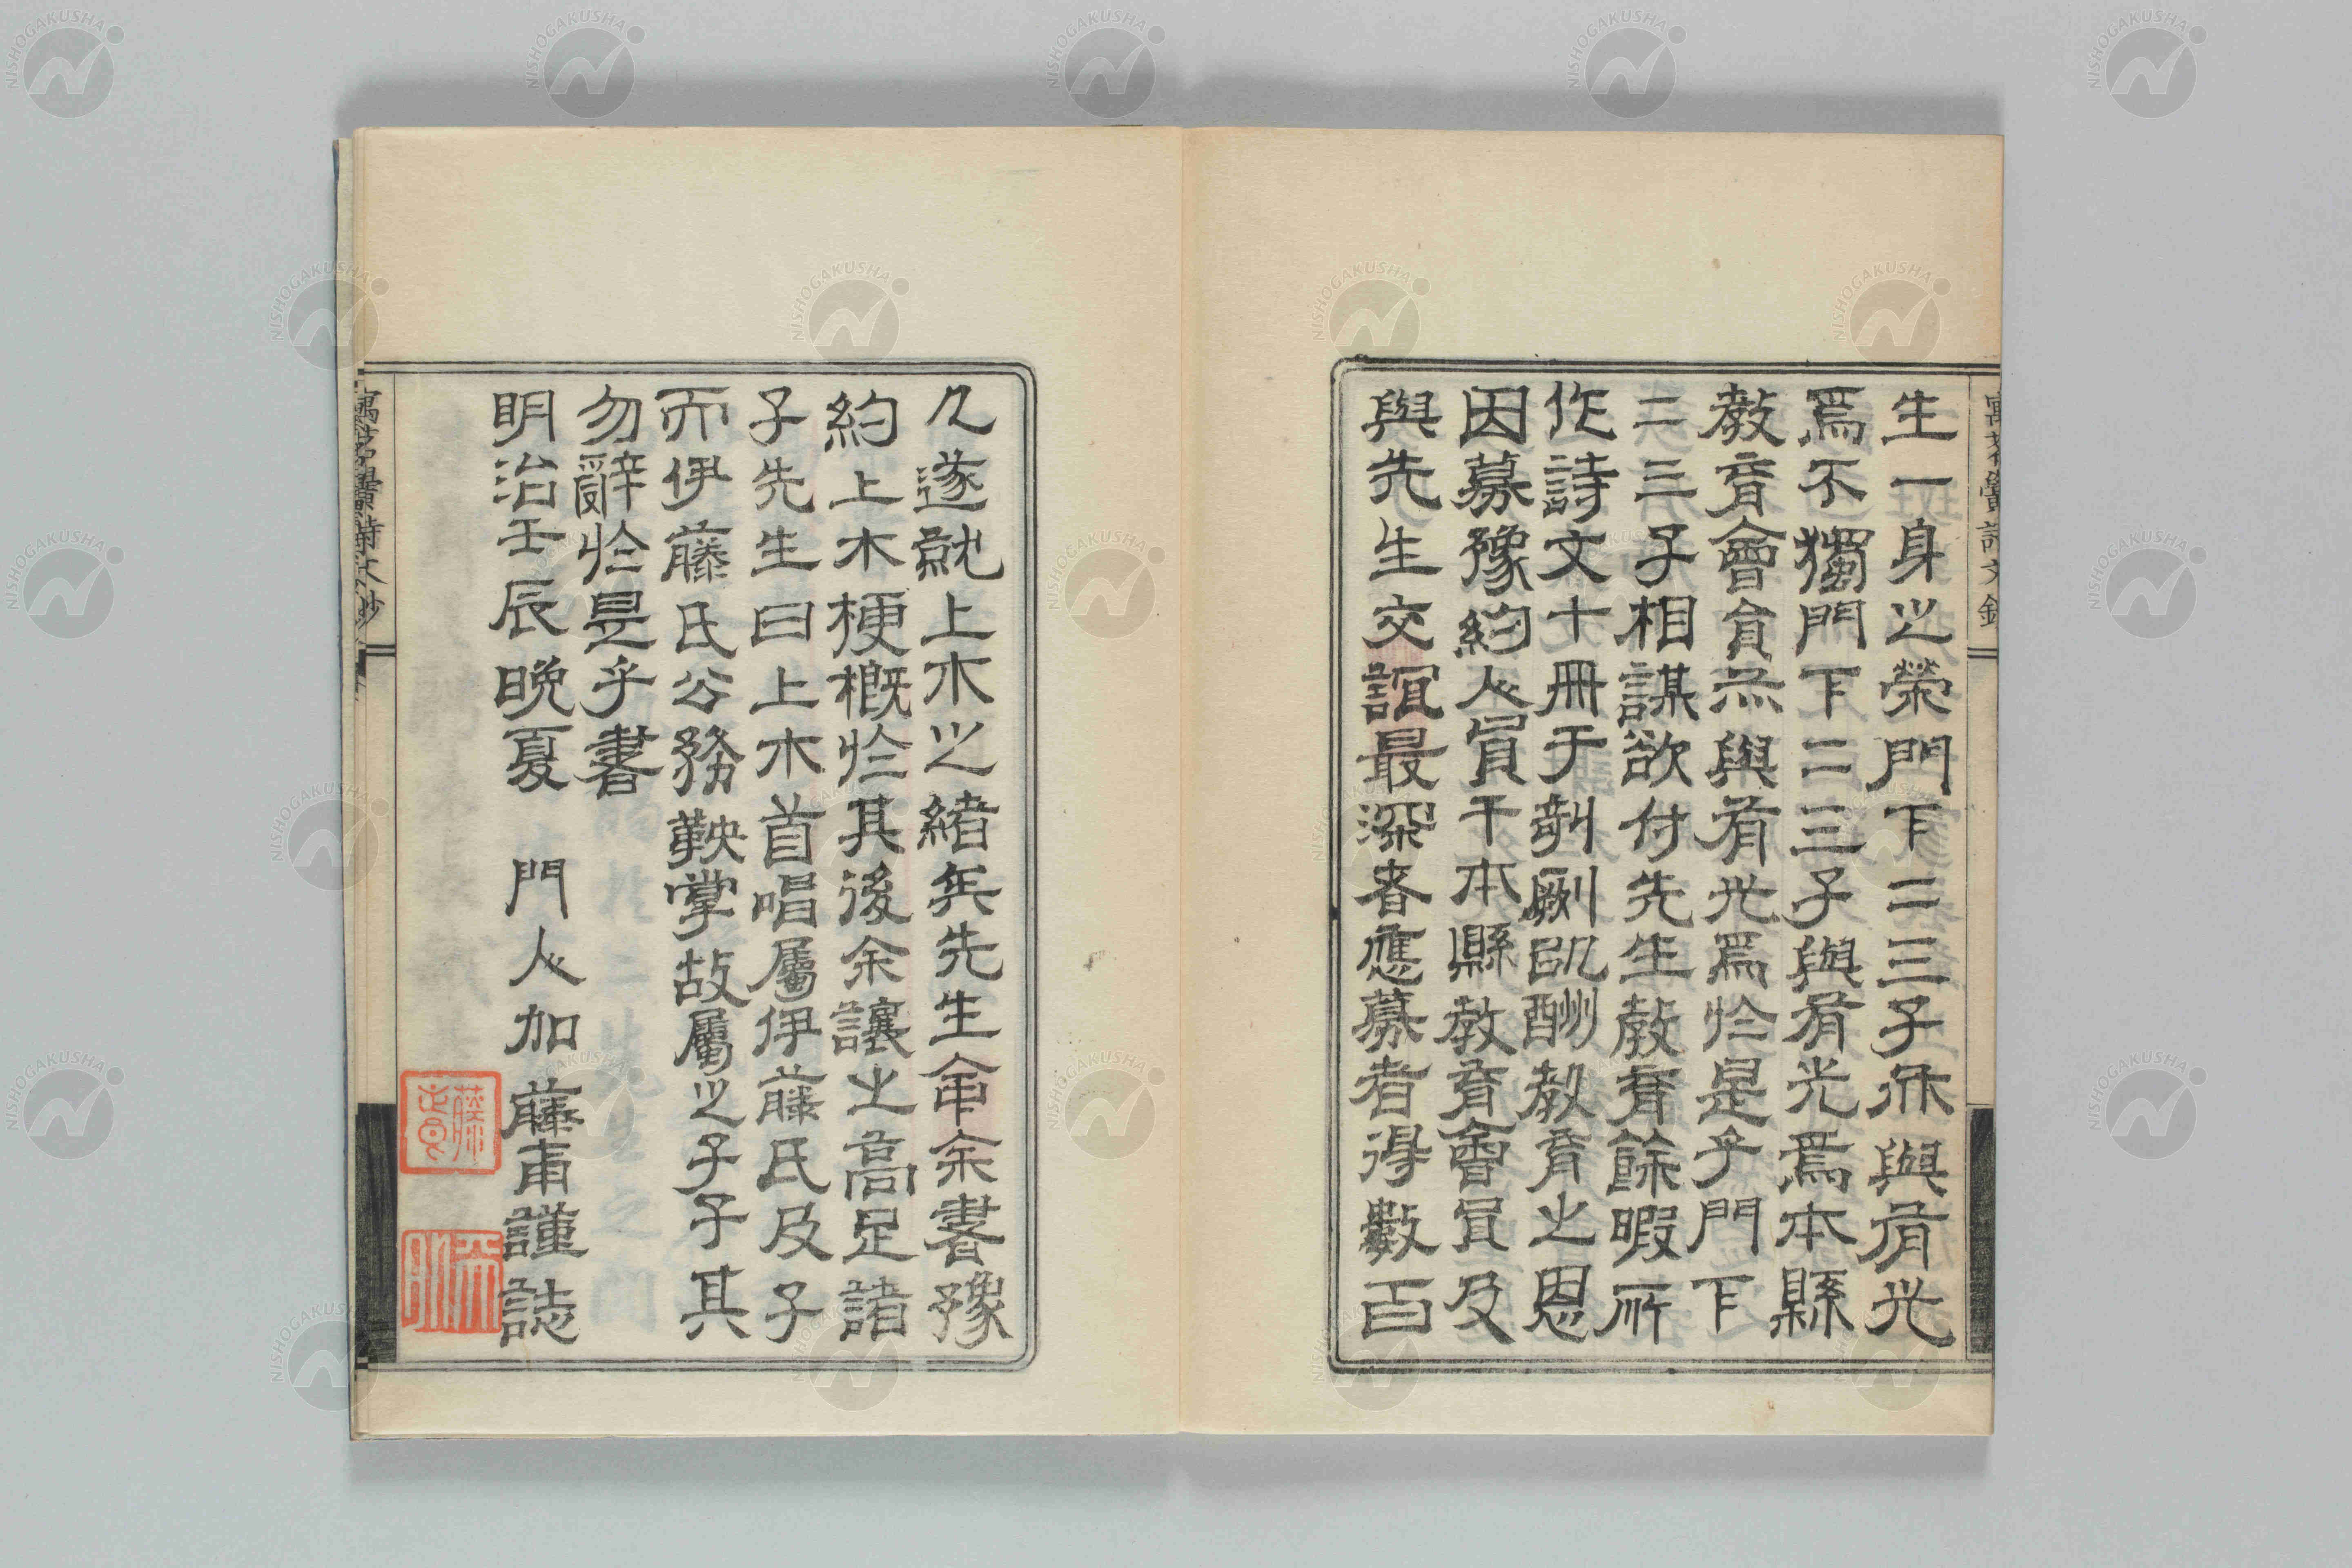 生一身之榮門下二三子亦與有光
焉不獨門下二三子與有光焉本縣
教育會員亦與有光焉於是乎門下
二三子相謀欲付先生教育餘暇所
作詩文十冊于剞劂以酬教育之恩
因募豫約人員干本縣教育會員及
與先生交誼最深者應募者得數百
人遂就上木之緒矣先生命余書豫
約上木梗概於其後余讓之高足諸
子先生曰上木首唱屬伊藤氏及子
而伊藤氏公務鞅掌故屬之子子其
勿辭於是乎書
明治壬辰晚夏 門人加藤甫謹誌